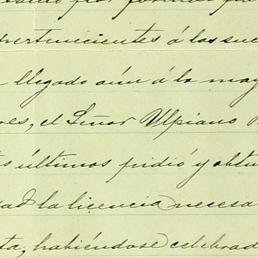 pertenecientes á las suc
llegado aún á la may
res, el Señor Ulpiano
últimos pidió y obtu
la licencia necesa
ta, habiéndose celebrad